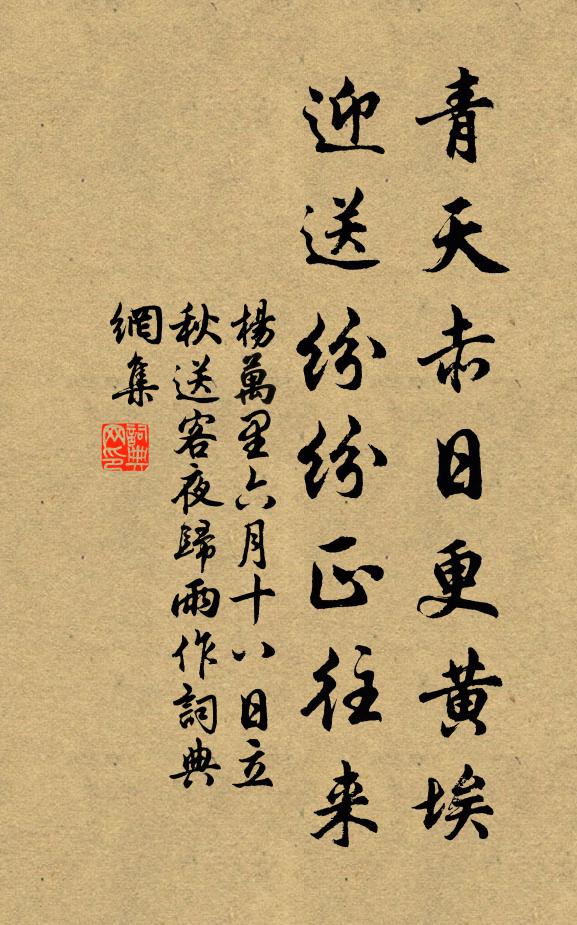 青天赤日更黄埃
迎送纷纷正往来
楊萬里六月十八日立
秋送客夜歸雨作詞典
網集
詞典
网印